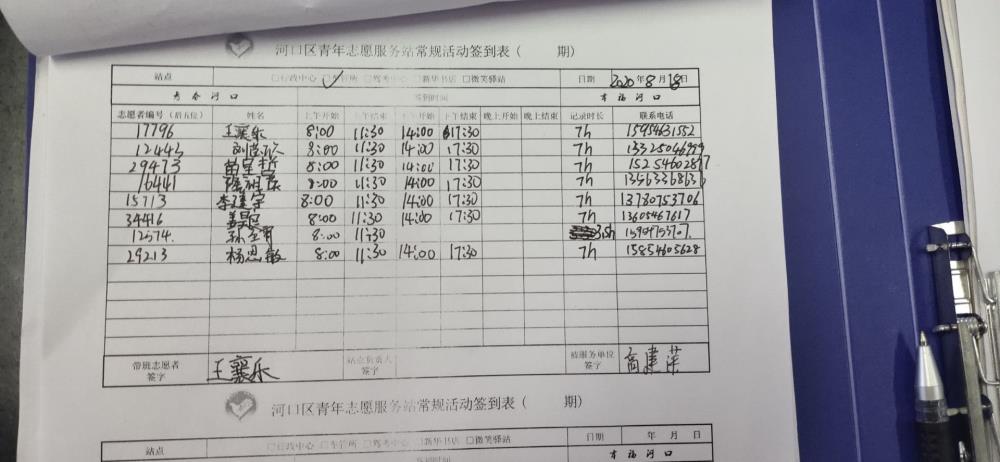 河口区青年志愿服务站常规活动签到表（ 期）
站点 □行政中心 □车管所 □驾考中心 □新华书店 □微笑驿站 日期 2020年8月18日
青春河口 签到时间 幸福河口
志愿者编号（后五位） 姓名 上午开始 上午结束 下午开始 下午结束 晚上开始 晚上结束 记录时长 联系电话
17796 王襄乐 8:00 11:30 14:00 17:30 7h 15954631552
12443 8:00 11:30 14:00 17:30 7h
29473 8:00 11:30 14:00 17:30 7h
16441 8:00 11:30 14:00 17:30 7h
15713 李建宇 8:00 11:30 14:00 17:30 7h 13780753706
34416 8:00 11:30 14:00 17:30 7h 13605467617
12574. 8:00 11:30 3.5h
29213 杨思敏 8:00 11:30 14:00 17:30 7h 15854605628
带班志愿者签字 王襄乐 站点负责人签字 被服务单位签字 高建萍
河口区青年志愿服务站常规活动签到表（ 期）
站点 □行政中心 □车管所 □驾考中心 □新华书店 □微笑驿站 日期 年 月 日
签到时间 幸福河口